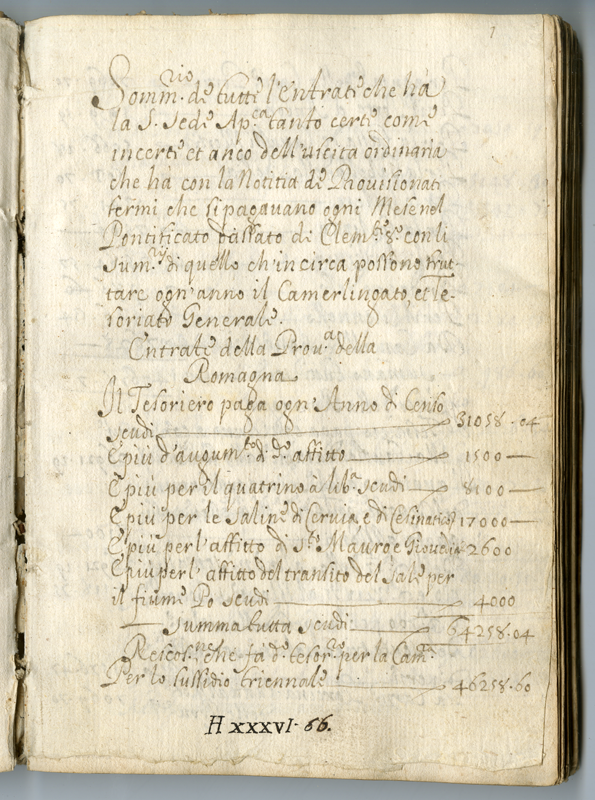 1
Somm.rio de tutte l'entrate che ha
la S. Sede Ap.ca tanto certe come
incerte et anco dell'uscita ordinaria
che ha con la Notitia de Provisionati
fermi che si pagavano ogni Mese nel
Pontificato passato di Clem.te 8.o con li
Sum.rij di quello ch'incirca possono frut-
tare ogn'anno il Camerlingato, et Te-
soriato Generale.
Entrate della Prov.a della
Romagna
Il Tesoriero paga ogn'Anno di Censo
scudi 31058.04
E più d'augum.to di d.o affitto 1500
E più per il quatrino à lib.a scudi 8100
E più per le saline di Cervia, e di Cesinatico 17000
E più per l'affitto di S.to Mauro e Giovedia 2600
E più per l'affitto del transito del Sale per
il fiume Po scudi 4000
Summa tutta scudi 64258.04
che fa d.o tesor.ro per la Cam.a
Per lo sussidio triennale 46258.60
H XXXVI - 66.